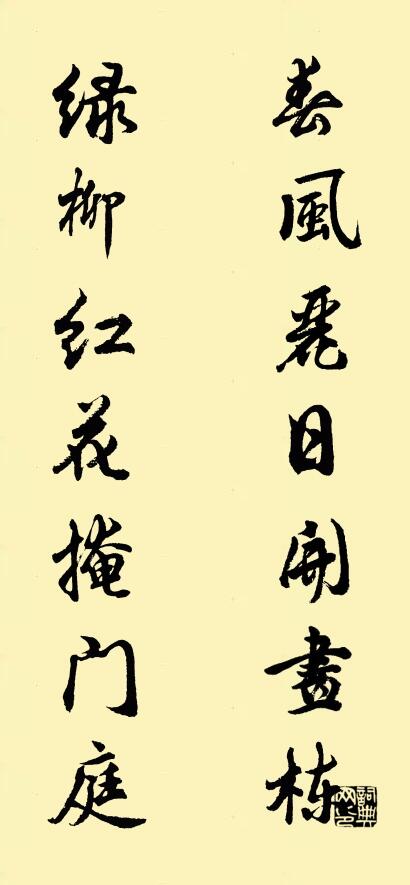 春風麗日開畫栋
绿柳红花掩门庭
詞典网